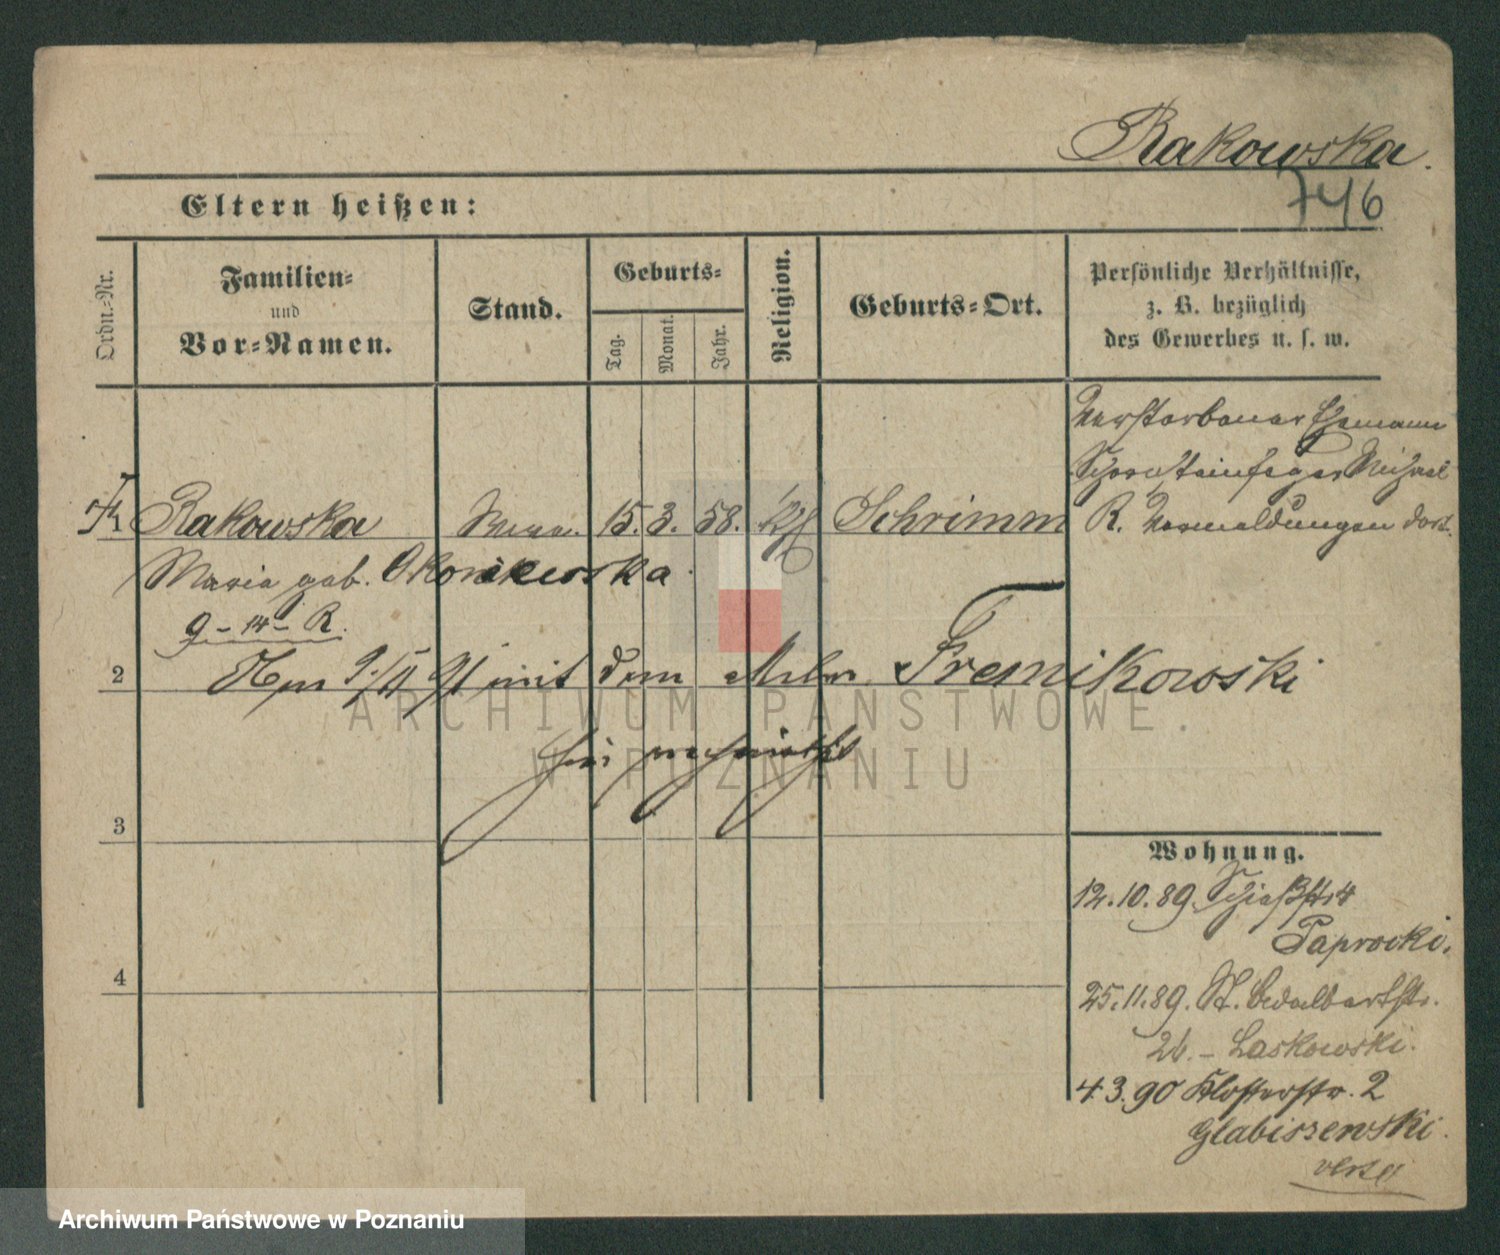 Rakowska.
746
Eltern heißen:
Ordn.-Nr.
Familien-
und
Vor-Namen.
Stand.
Geburts-
Tag.
Monat.
Jahr.
Religion.
Geburts-Ort.
Persönliche Verhältnisse,
z. B. bezüglich
des Gewerbes u. s. w.
Verstorbener Ehemann
Schornsteinfeger Michael
R. Vermeldungen dort.
1 Rakowska 15. 3. 58. Schrimm
Maria geb. Okoniewska
9 - 14 - R.
2
mit dem Franikowski
3
4
Wohnung.
12.10.89. Schießstr 4
Paprocki.
25.11.89. St. Adalbertstr.
26. - Laskowski.
4 3. 90 Klosterstr. 2
Glabiszewski.
versa
ARCHIWUM PAŃSTWOWE
W POZNANIU
Archiwum Państwowe w Poznaniu